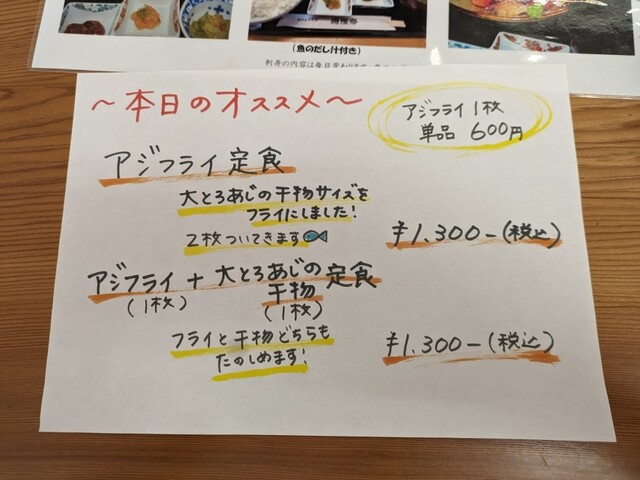 (魚のだし汁付き)
~本日のオススメ~
アジフライ1枚
単品 600円
アジフライ定食
大とろあじの干物サイズを
フライにしました!
2枚ついてきます
¥1.300-(税込)
アジフライ+大とろあじの定食
干物
(1枚)
(1枚)
フライと干物どちらも
たのしめます!
¥1.300-(税込)